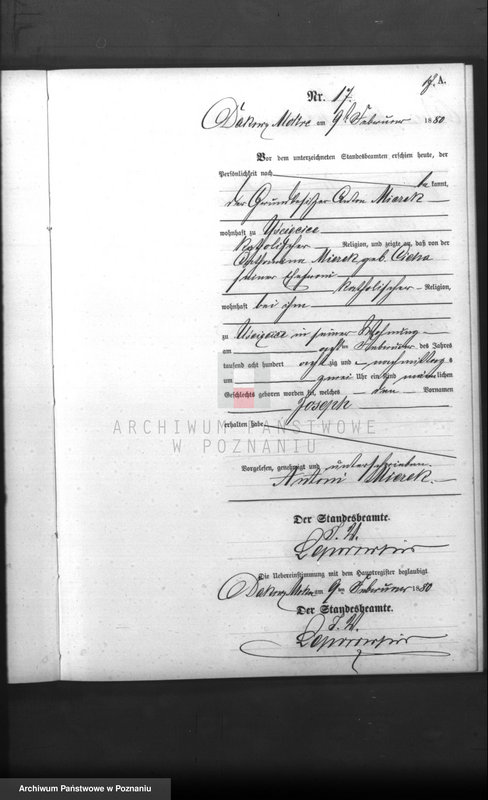 A.
Nr. 17.
Dakowy Mokre am 9ten Februar 1880
Vor dem unterzeichneten Standesbeamten erschien heute, der
Persönlichkeit nach
be kannt,
der Grundbesitzer Anton Mierek
wohnhaft zu Uścięcice
katholischer Religion, und zeigte an, daß von der
Mierek geb.
seiner Ehefrau
katholischer Religion,
wohnhaft bei ihm
zu Uścięcice in seiner Wohnung
am achten Februar des Jahres
tausend acht hundert achtzig und nachmittags
um zwei Uhr ein Kind männlichen
Geschlechts geboren worden sei, welches den Vornamen
Joseph
erhalten habe
ARCHIWUM PAŃSTWOWE
W POZNANIU
Vorgelesen, genehmigt und unterschrieben.
Antoni Mierek.
Der Standesbeamte.
Die Uebereinstimmung mit dem Hauptregister beglaubigt
Dakowy Mokre am 9ten Februar 1880
Der Standesbeamte.
Archiwum Państwowe w Poznaniu